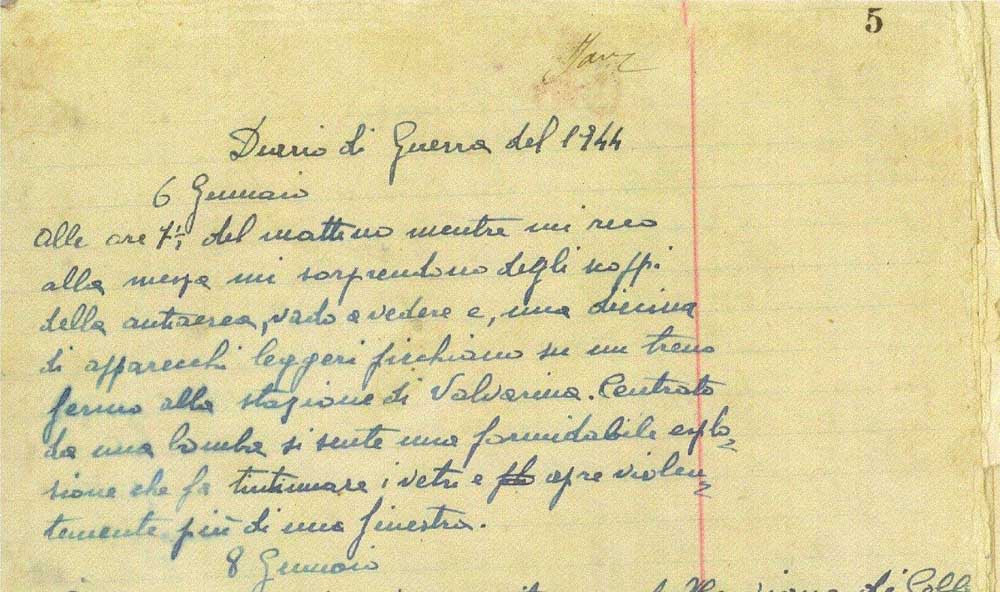 5
Diario di Guerra del 1944
6 Gennaio
alle ore 7½ del mattino mentre mi reco
alla messa mi sorprendono degli scoppi
della antiaerea, vado a vedere e, una decina
di apparecchi leggeri picchiano su un treno
fermo alla stazione di Valvarina. Centrato
da una bomba si sente una formidabile esplo=
sione che fa tintinnare i vetri e apre violen=
temente più di una finestra.
8 Gennaio
di Colle